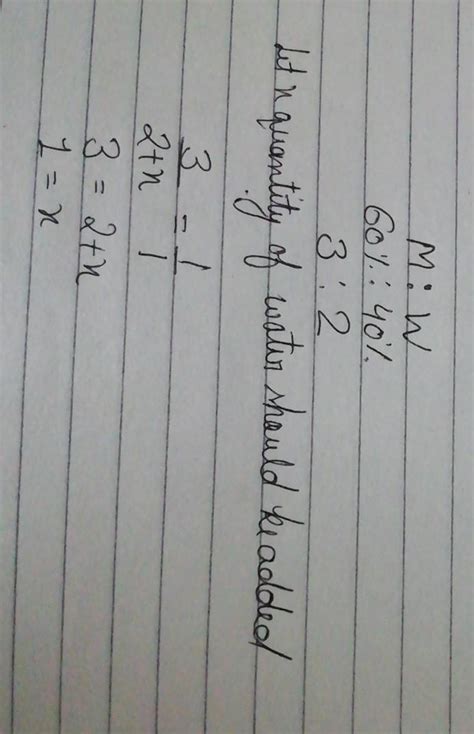 M : W
60% : 40%
3 : 2
Let x quantity of water should be added
3 / 2+x = 1 / 1
3 = 2+x
1 = x